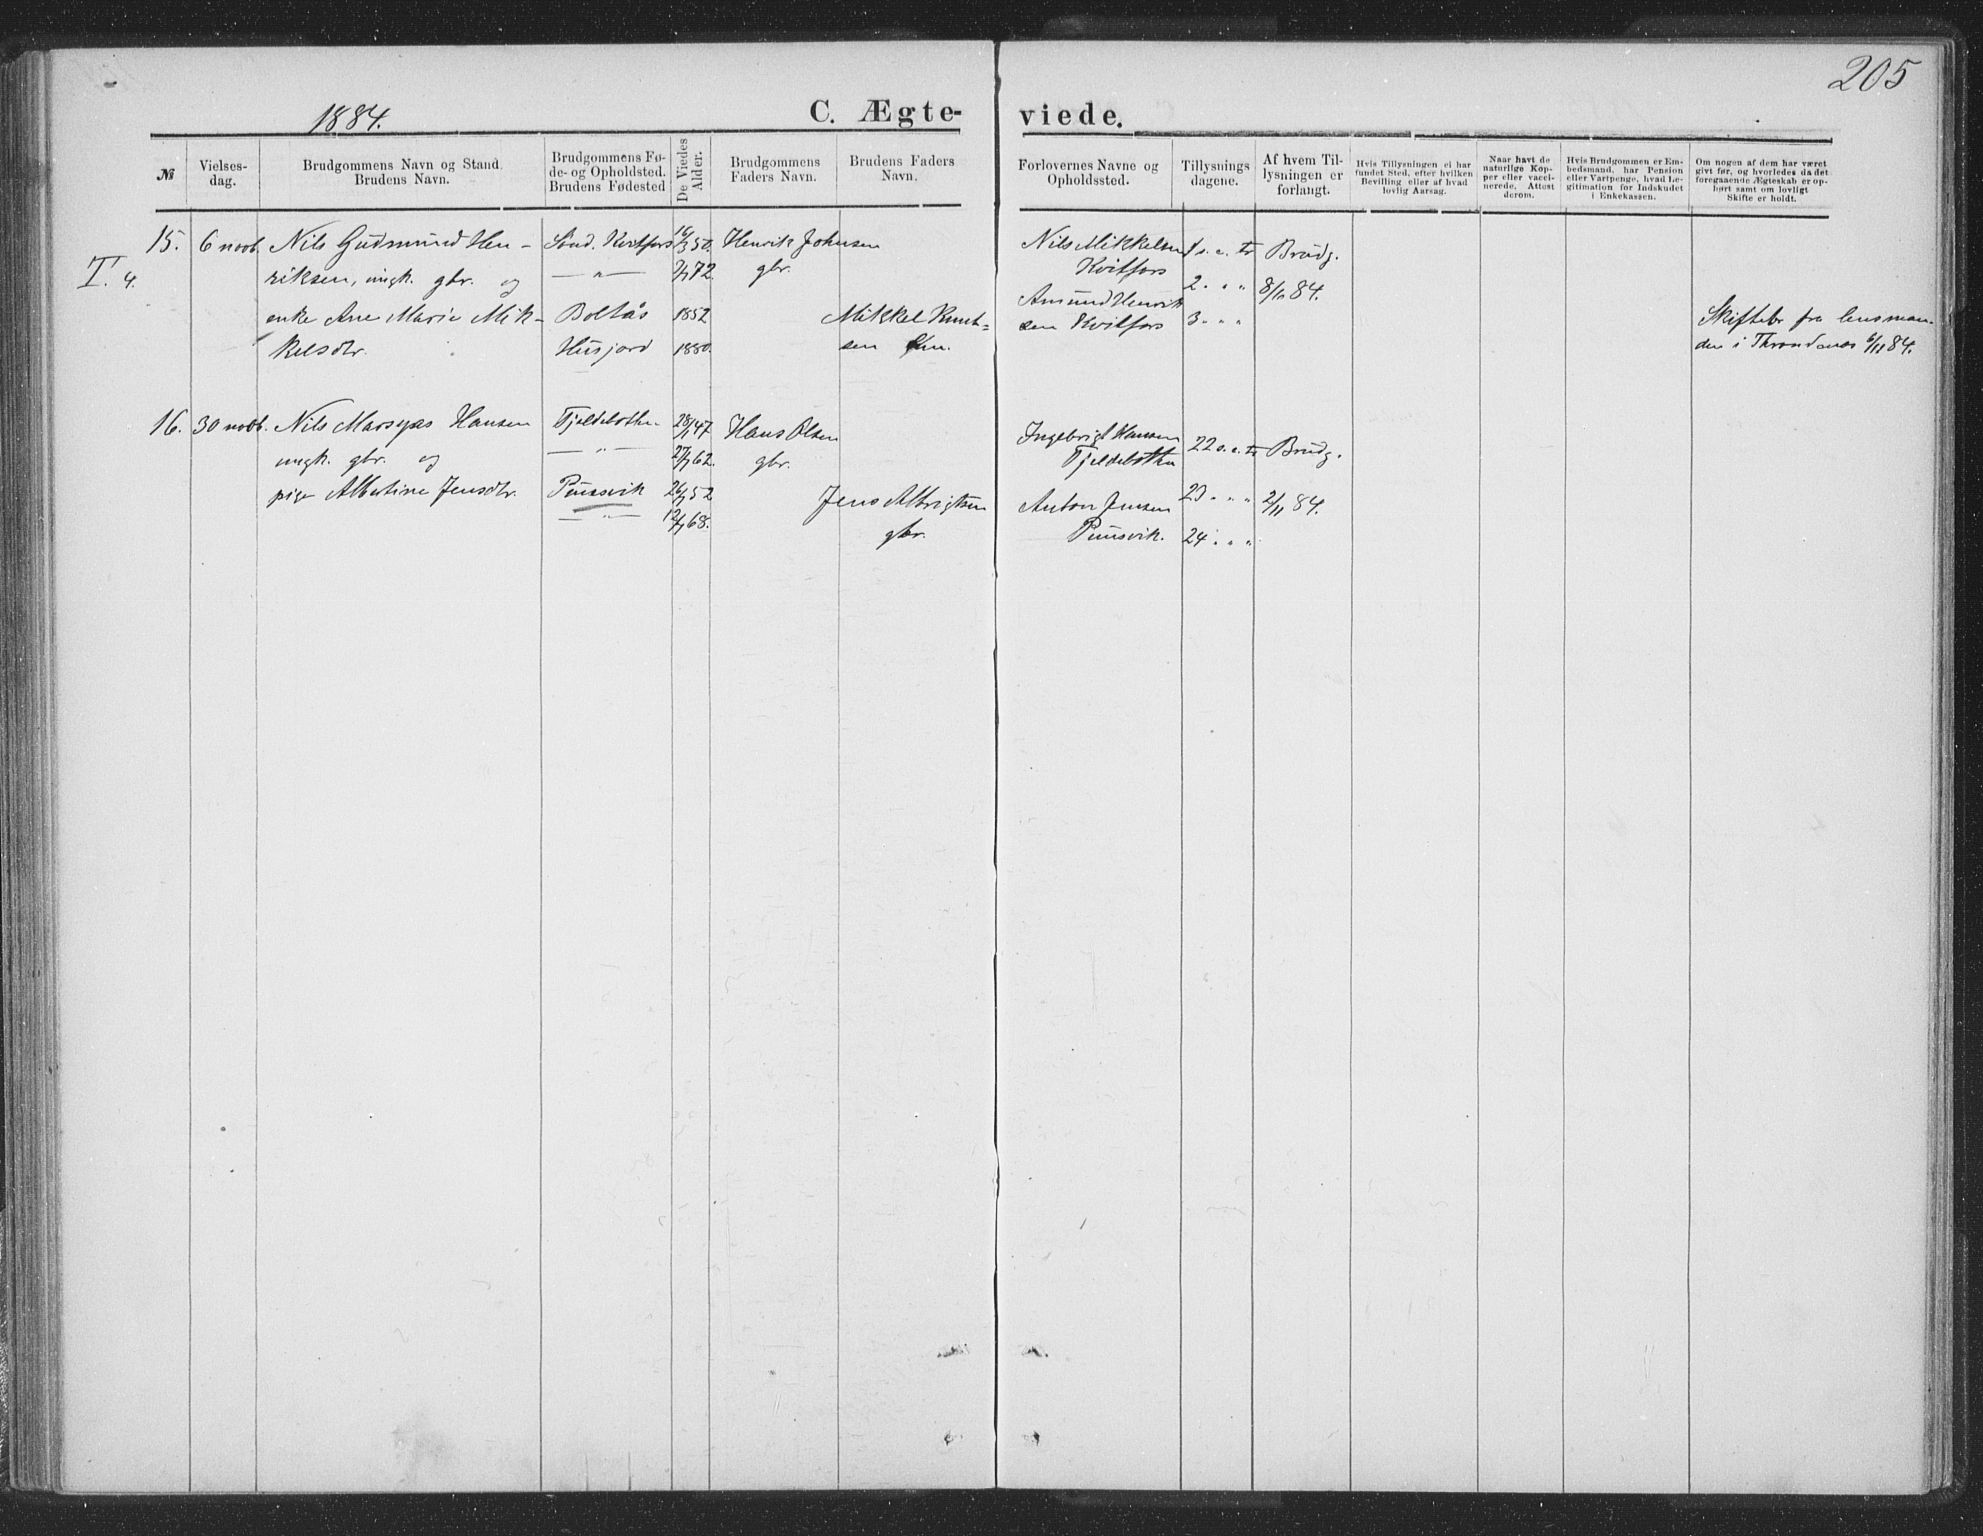 205
1884.
C. Ægte-
viede.
№
Vielses-
dag.
Brudgommens Navn og Stand.
Brudens Navn.
Brudgommens Fø-
de- og Opholdsted.
Brudens Fødested
De Viedes
Alder.
Brudgommens
Faders Navn.
Brudens Faders
Navn.
Forlovernes Navne og
Opholdssted.
Tillysnings
dagene.
Af hvem Til-
lysningen er
forlangt.
Hvis Tillysningen ei har
fundet Sted, efter hvilken
Bevilling eller af hvad
lovlig Aarsag.
Naar havt de
naturlige Kop-
per eller vacci-
nerede, Attest
derom.
Hvis Brudgommen er Em-
bedsmand, har Pension
eller Vartpenge, hvad Le-
gitimation for Indskudet
i Enkekassen.
Om nogen af dem har været
givt før, og hvorledes da det
foregaaende Ægteskab er op-
hørt samt om lovligt
Skifte er holdt.
T. 4.
15.
6 novb.
Nils Gudmund Hen-
riksen, ungk. gbr. og
enke Ane Marie Mik-
kelsdtr.
Sand. Kvitfors
— " —
Boltås
Husjord
1852
1880.
Henrik Johnsen
gbr.
Mikkel Knut-
sen
Nils Mikkelsen
Kvitfors
Amund Henrik
sen Kvitfors
1 s. e. tr
2. " "
3. " "
Brudg.
84.
Skiftebr fra lensman-
den i Throndenes 6/11 84.
16.
30 novb.
Nils Marsyas Hansen
ungk. gbr. og
pige Albertine Jensdtr.
Fjeldbothn
— " —
Punsvik
— " —
Hans Olsen
gbr.
Jens Albrigtsen
gbr.
Ingebrigt Hansen
Fjeldebothn
Anton Jensen
Punsvik.
22 s. e. tr
23 " "
24 . " "
Brudg.
2/11 84.